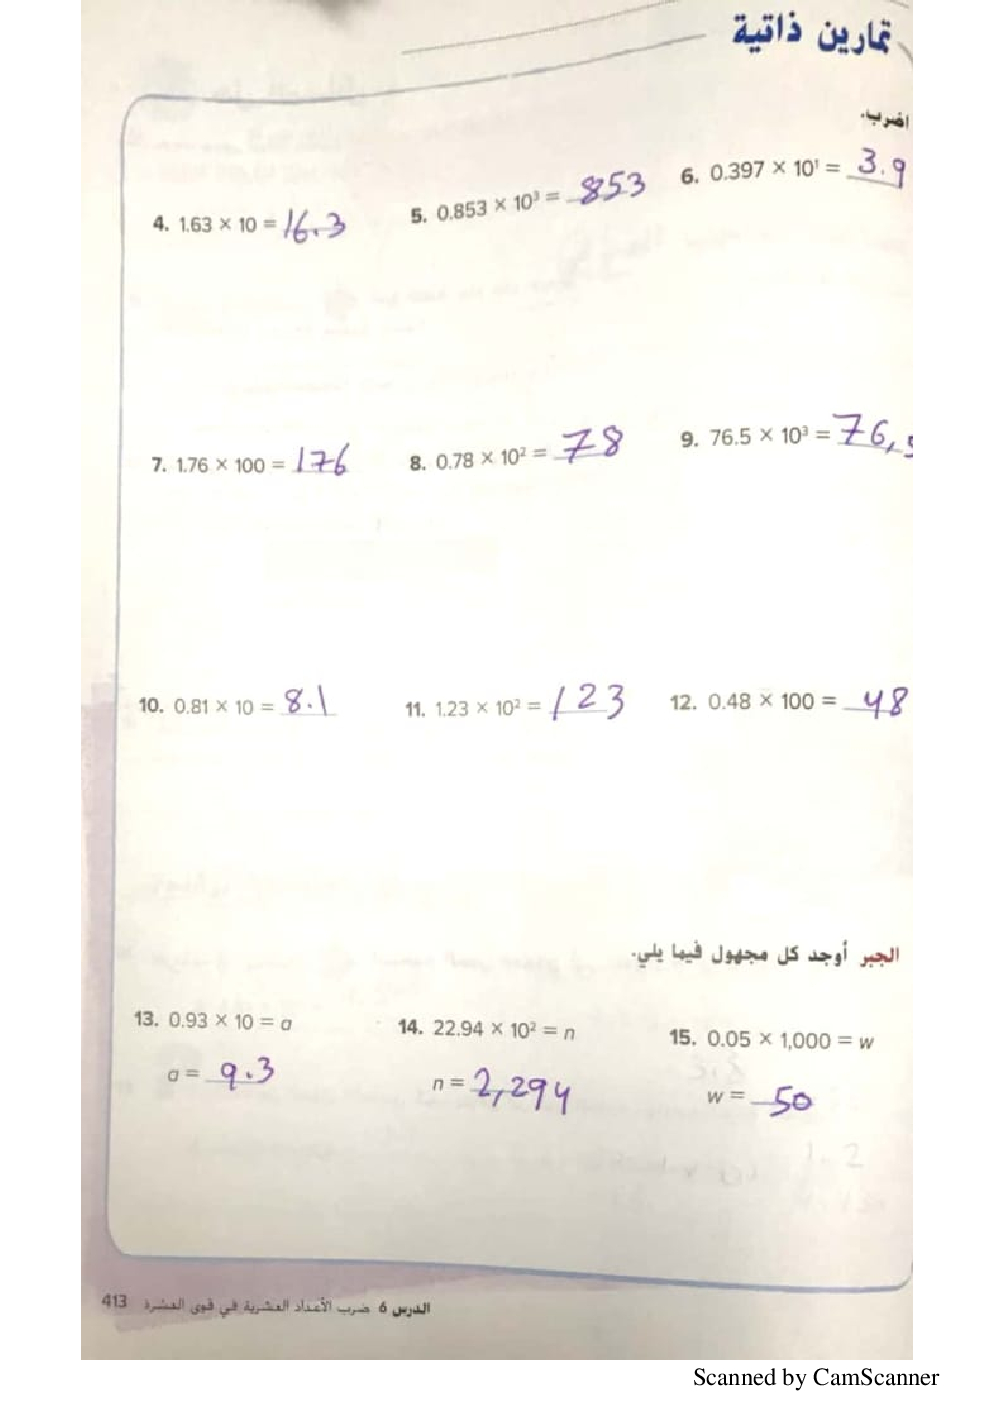 تمارين ذاتية
اضرب.
4. 1.63 × 10 = 16.3
5. 0.853 × 10³ = 853
6. 0.397 × 10¹ = 3.9
7. 1.76 × 100 = 176
8. 0.78 × 10² = 78
9. 76.5 × 10³ = 76,5
10. 0.81 × 10 = 8.1
11. 1.23 × 10² = 123
12. 0.48 × 100 = 48
الجبر أوجد كل مجهول فيما يلي.
13. 0.93 × 10 = a
14. 22.94 × 10² = n
15. 0.05 × 1,000 = w
a = 9.3
n = 2,294
w = 50
413 الدرس 6 ضرب الأعداد العشرية في قوى العشرة
Scanned by CamScanner